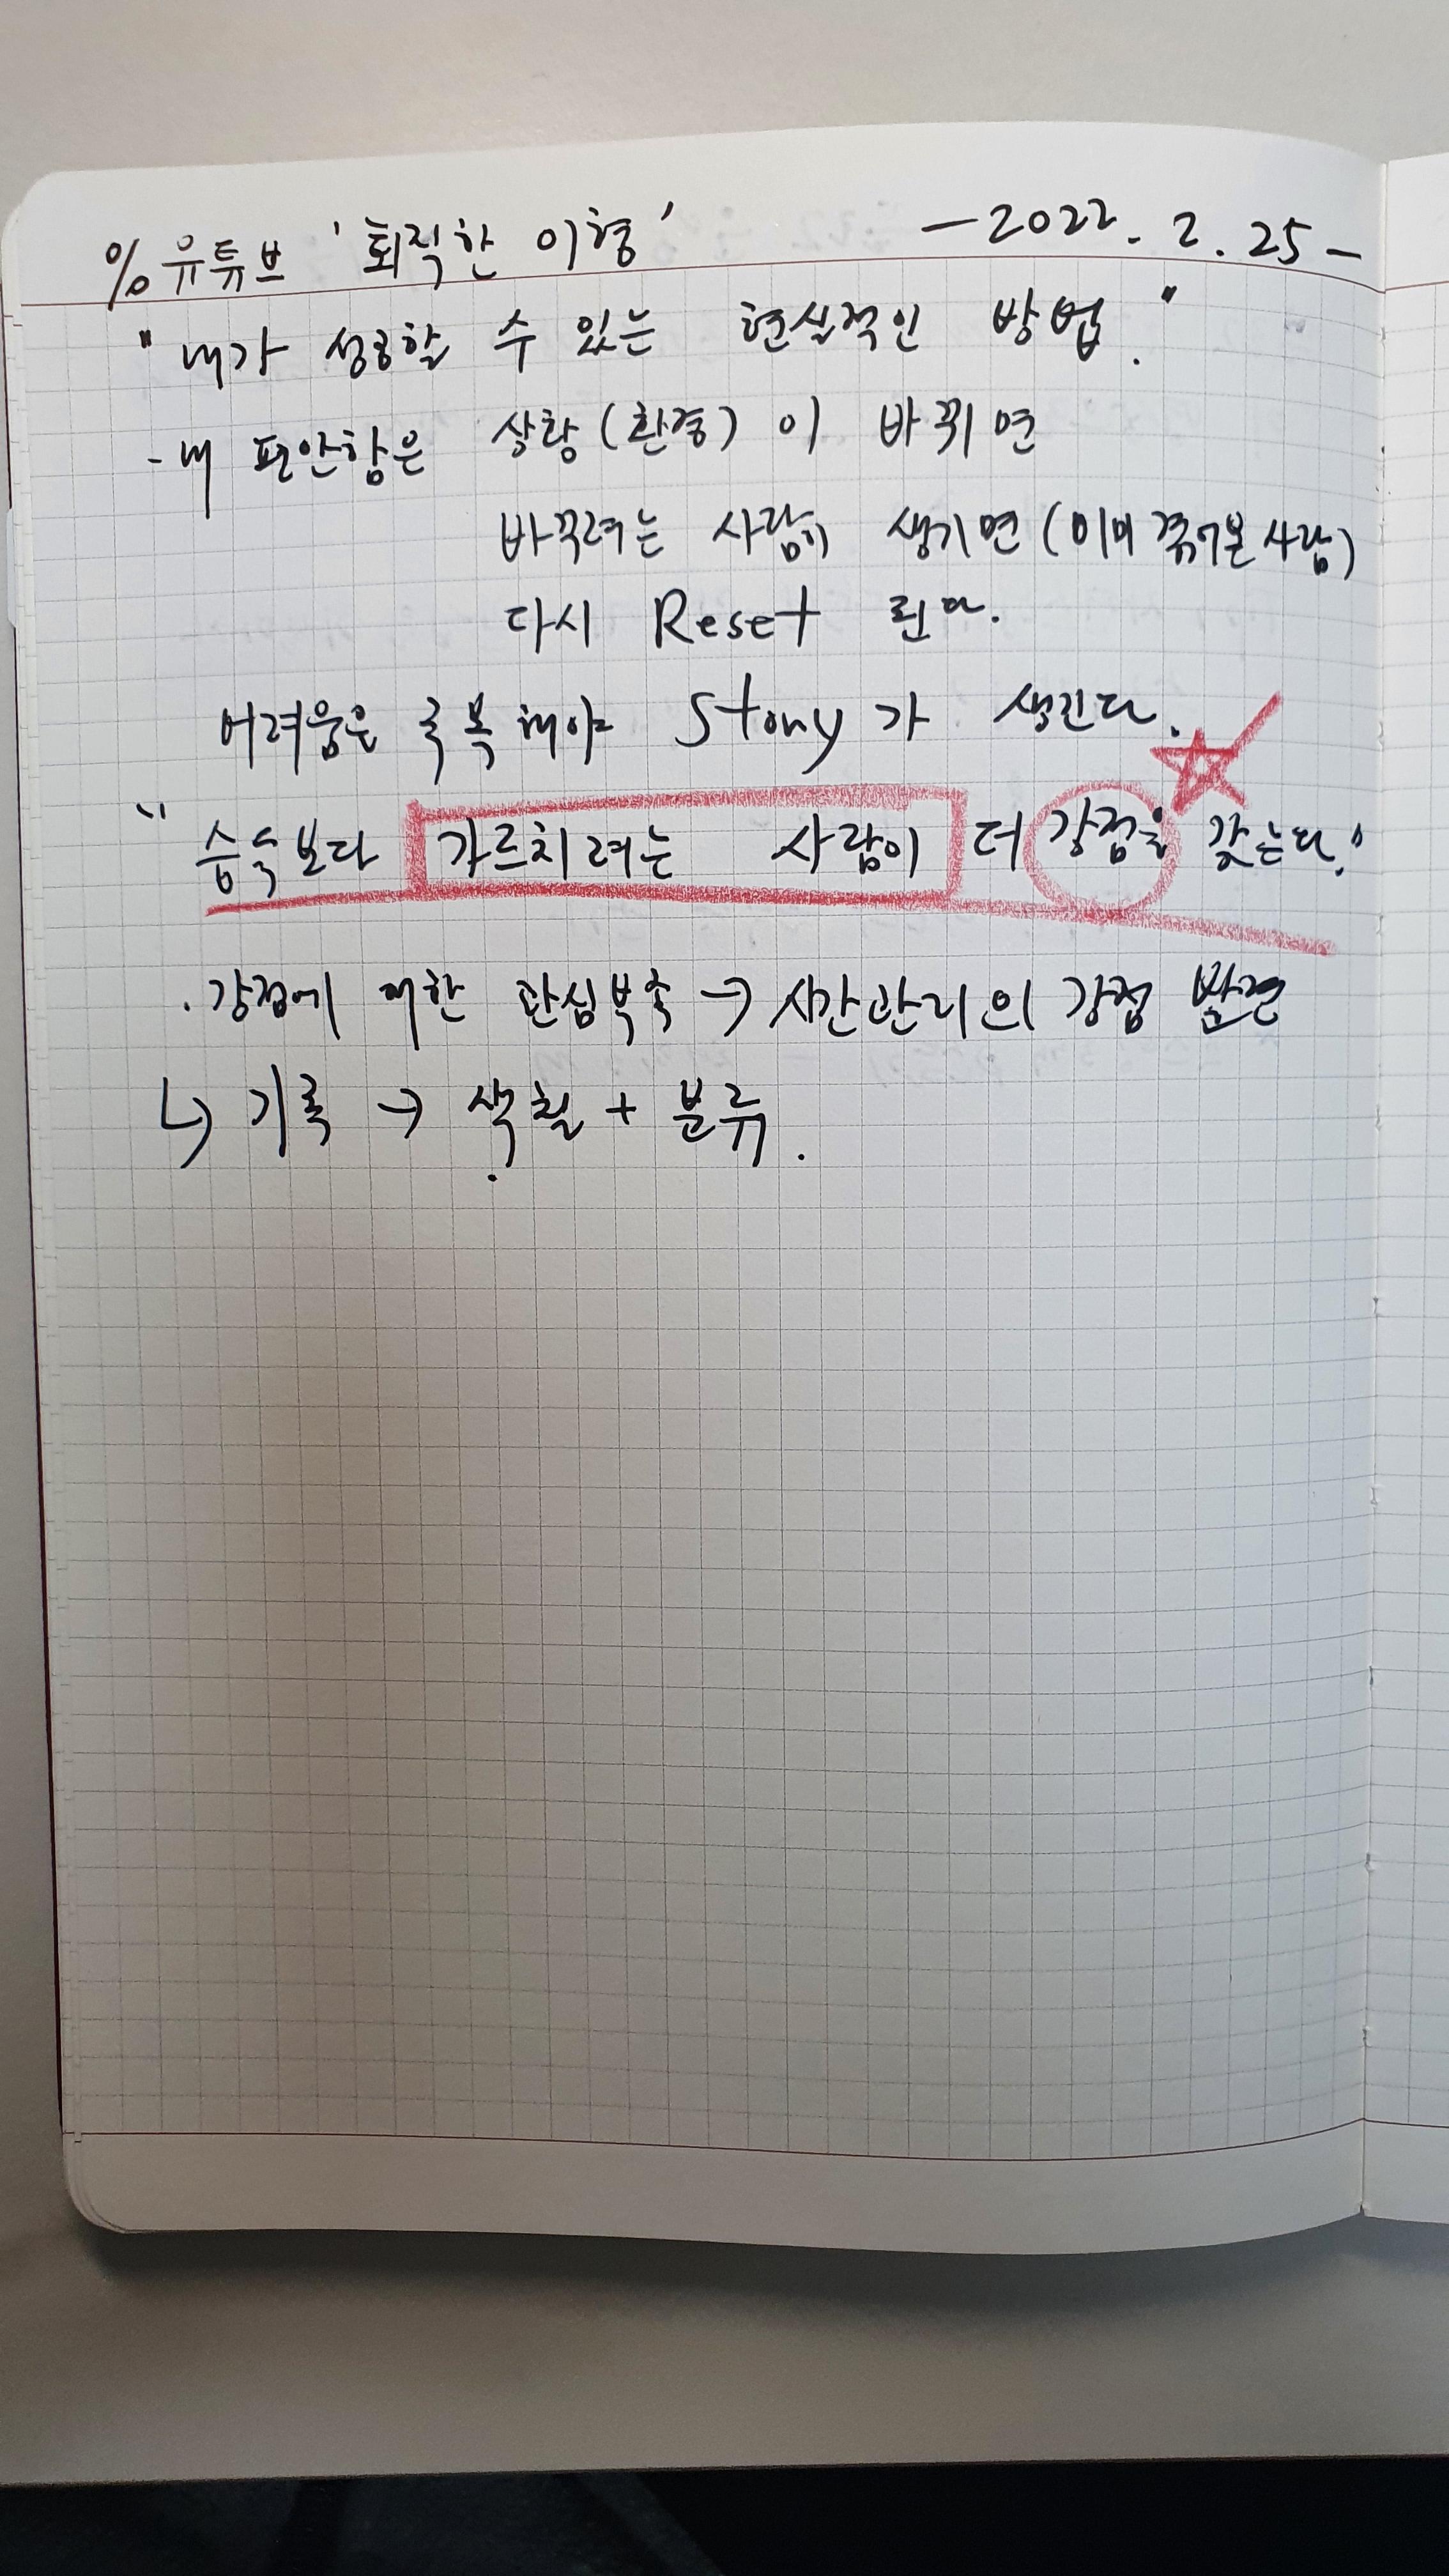 % 유튜브 '퇴직한 이형' - 2022. 2. 25 -
"내가 성공할 수 있는 현실적인 방법."
- 내 편안함은 상황(환경)이 바뀌면
바꾸려는 사람이 생기면 (이미 겪어본 사람)
다시 Reset 된다.
어려움은 극복해야 Story가 생긴다.
"습득보다 가르치려는 사람이 더 강점을 갖는다."
. 강점에 대한 관심부족 → 시간관리의 강점 발견
↳ 기록 → 색칠 + 분류.